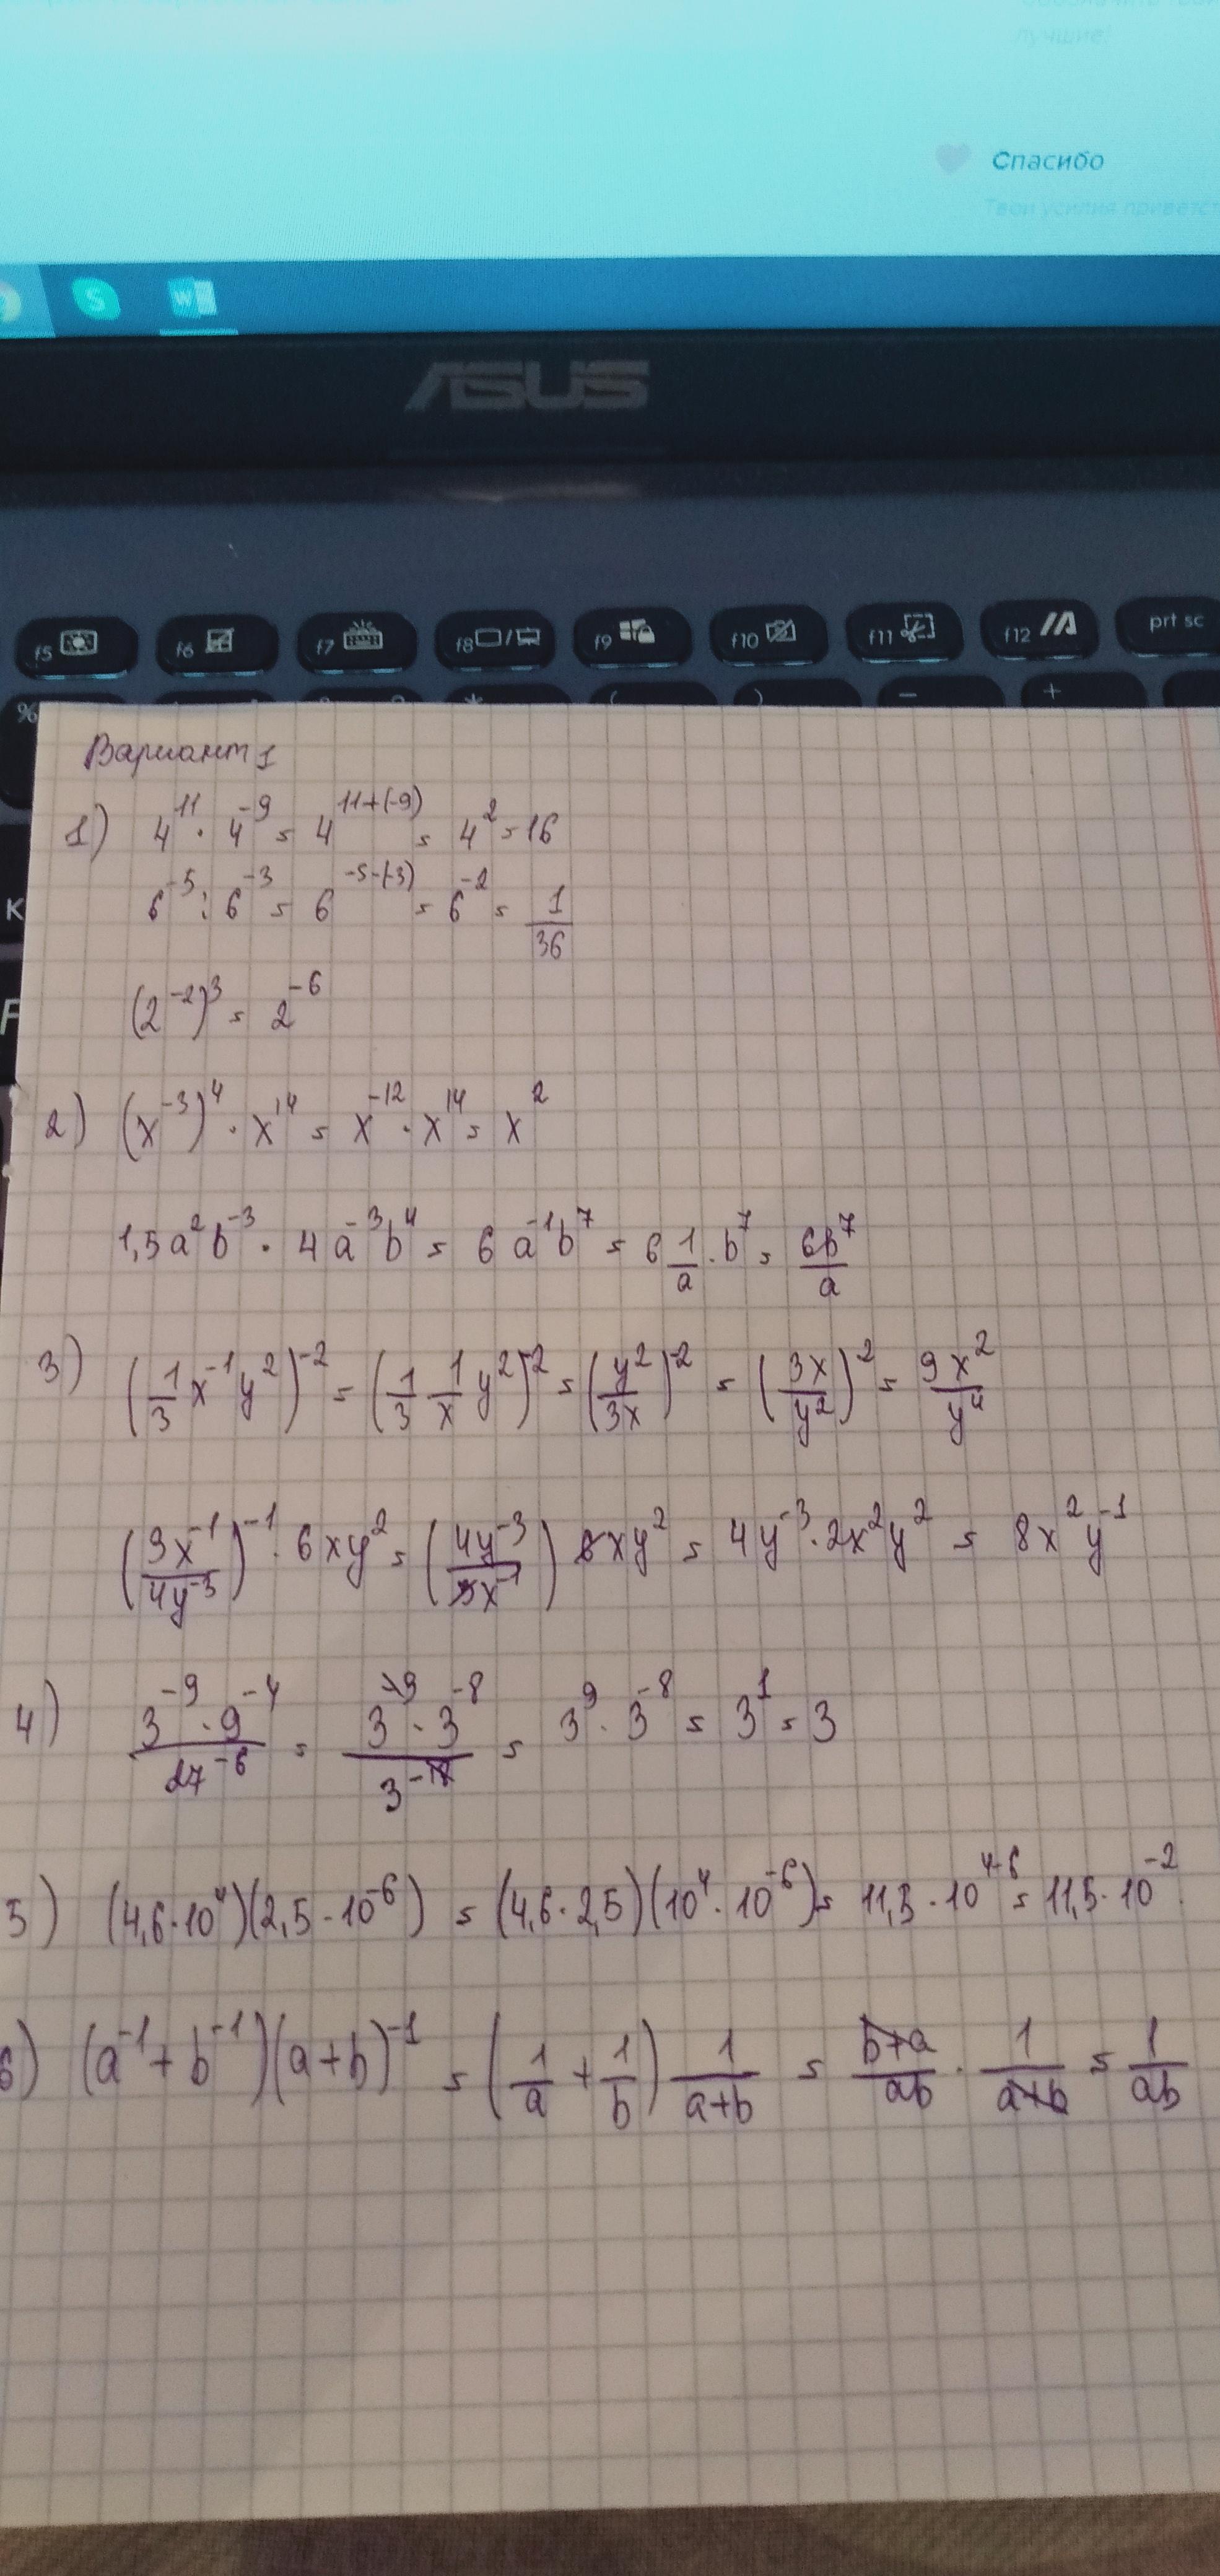 лучшие!
Спасибо
Твои усилия приветст
S W
ASUS
f5 f6 f7 f8 f9 f10 f11 f12 prt sc
% * ( ) − +
K
F
Вариант 1
1) 4¹¹ · 4⁻⁹ = 4¹¹⁺⁽⁻⁹⁾ = 4² = 16
6⁻⁵ : 6⁻³ = 6⁻⁵⁻⁽⁻³⁾ = 6⁻² = 1/36
(2⁻²)³ = 2⁻⁶
2) (x⁻³)⁴ · x¹⁴ = x⁻¹² · x¹⁴ = x²
1,5a²b⁻³ · 4a⁻³b⁴ = 6a⁻¹b⁷ = 6 1/a · b⁷ = 6b⁷/a
3) (1/3 x⁻¹y²)⁻² = (1/3 1/x y²)⁻² = (y²/3x)⁻² = (3x/y²)² = 9x²/y⁴
(3x⁻¹/4y⁻³)⁻¹ · 6xy² = (4y⁻³/3x⁻¹) 6xy² = 4y⁻³ · 2x²y² = 8x²y⁻¹
4) 3⁻⁹ · 9⁻⁴/27⁻⁶ = 3⁻⁹ · 3⁻⁸/3⁻¹⁸ = 3⁹ · 3⁻⁸ = 3¹ = 3
5) (4,6 · 10⁴)(2,5 · 10⁻⁶) = (4,6 · 2,5)(10⁴ · 10⁻⁶) = 11,5 · 10⁴⁻⁶ = 11,5 · 10⁻².
6) (a⁻¹ + b⁻¹)(a+b)⁻¹ = (1/a + 1/b) 1/(a+b) = (b+a)/ab · 1/(a+b) = 1/ab